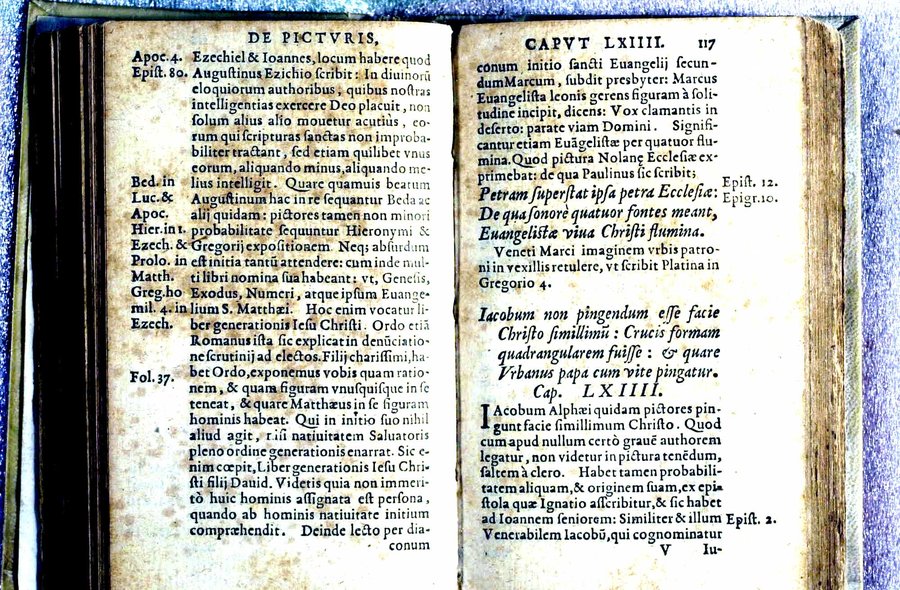 DE PICTVRIS.
Apoc. 4. Ezechiel & Ioannes, locum habere quod
Epist. 80. Augustinus Ezichio scribit: In diuinorũ
eloquiorum authoribus, quibus nostras
intelligentias exercere Deo placuit, non
solum alius alio mouetur acutiùs, eo-
rum qui scripturas sanctas non improba-
biliter tractant, sed etiam quilibet vnus
eorum, aliquando minus, aliquando me-
Bed. in lius intelligit. Quare quamuis beatum
Luc. & Augustinum hac in re sequantur Beda ac
Apoc. alij quidam: pictores tamen non minori
Hier. in 1. probabilitate sequuntur Hieronymi &
Ezech. & Gregorij expositionem. Neq; absurdum
Prolo. in est initia tantũ attendere: cum inde mul-
Matth. ti libri nomina sua habeant: vt, Genesis,
Greg. ho Exodus, Numeri, atque ipsum Euange-
mil. 4. in lium S. Matthæi. Hoc enim vocatur li-
Ezech. ber generationis Iesu Christi. Ordo etiã
Romanus ista sic explicat in denũciatio-
ne scrutinij ad electos. Filij charissimi, ha-
Fol. 37. bet Ordo, exponemus vobis quam ratio-
nem, & quam figuram vnusquisque in se
teneat, & quare Matthæus in se figuram
hominis habeat. Qui in initio suo nihil
aliud agit, nisi natiuitatem Saluatoris
pleno ordine generationis enarrat. Sic e-
nim cœpit, Liber generationis Iesu Chri-
sti filij Dauid. Videtis quia non immeri-
tò huic hominis assignata est persona,
quando ab hominis natiuitate initium
compræhendit. Deinde lecto per dia-
conum
CAPVT LXIIII. 117
conum initio sancti Euangelij secun-
dum Marcum, subdit presbyter: Marcus
Euangelista leonis gerens figuram à soli-
tudine incipit, dicens: Vox clamantis in
deserto: parate viam Domini. Signifi-
cantur etiam Euãgelistæ per quatuor flu-
mina. Quod pictura Nolanę Ecclesiæ ex-
primebat: de qua Paulinus sic scribit;
Petram superstat ipsa petra Ecclesiæ: Epist. 12.
De qua sonorè quatuor fontes meant, Epigr. 10.
Euangelistæ viua Christi flumina.
Veneti Marci imaginem vrbis patro-
ni in vexillis retulere, vt scribit Platina in
Gregorio 4.
Iacobum non pingendum esse facie
Christo simillimũ: Crucis formam
quadrangularem fuisse: & quare
Vrbanus papa cum vite pingatur.
Cap. LXIIII.
IAcobum Alphæi quidam pictores pin-
gunt facie simillimum Christo. Quod
cum apud nullum certò grauẽ authorem
legatur, non videtur in pictura tenẽdum,
saltem à clero. Habet tamen probabili-
tatem aliquam, & originem suam, ex epi-
stola quæ Ignatio asscribitur, & sic habet
ad Ioannem seniorem: Similiter & illum Epist. 2.
Venerabilem Iacobũ, qui cognominatur
V Iu-